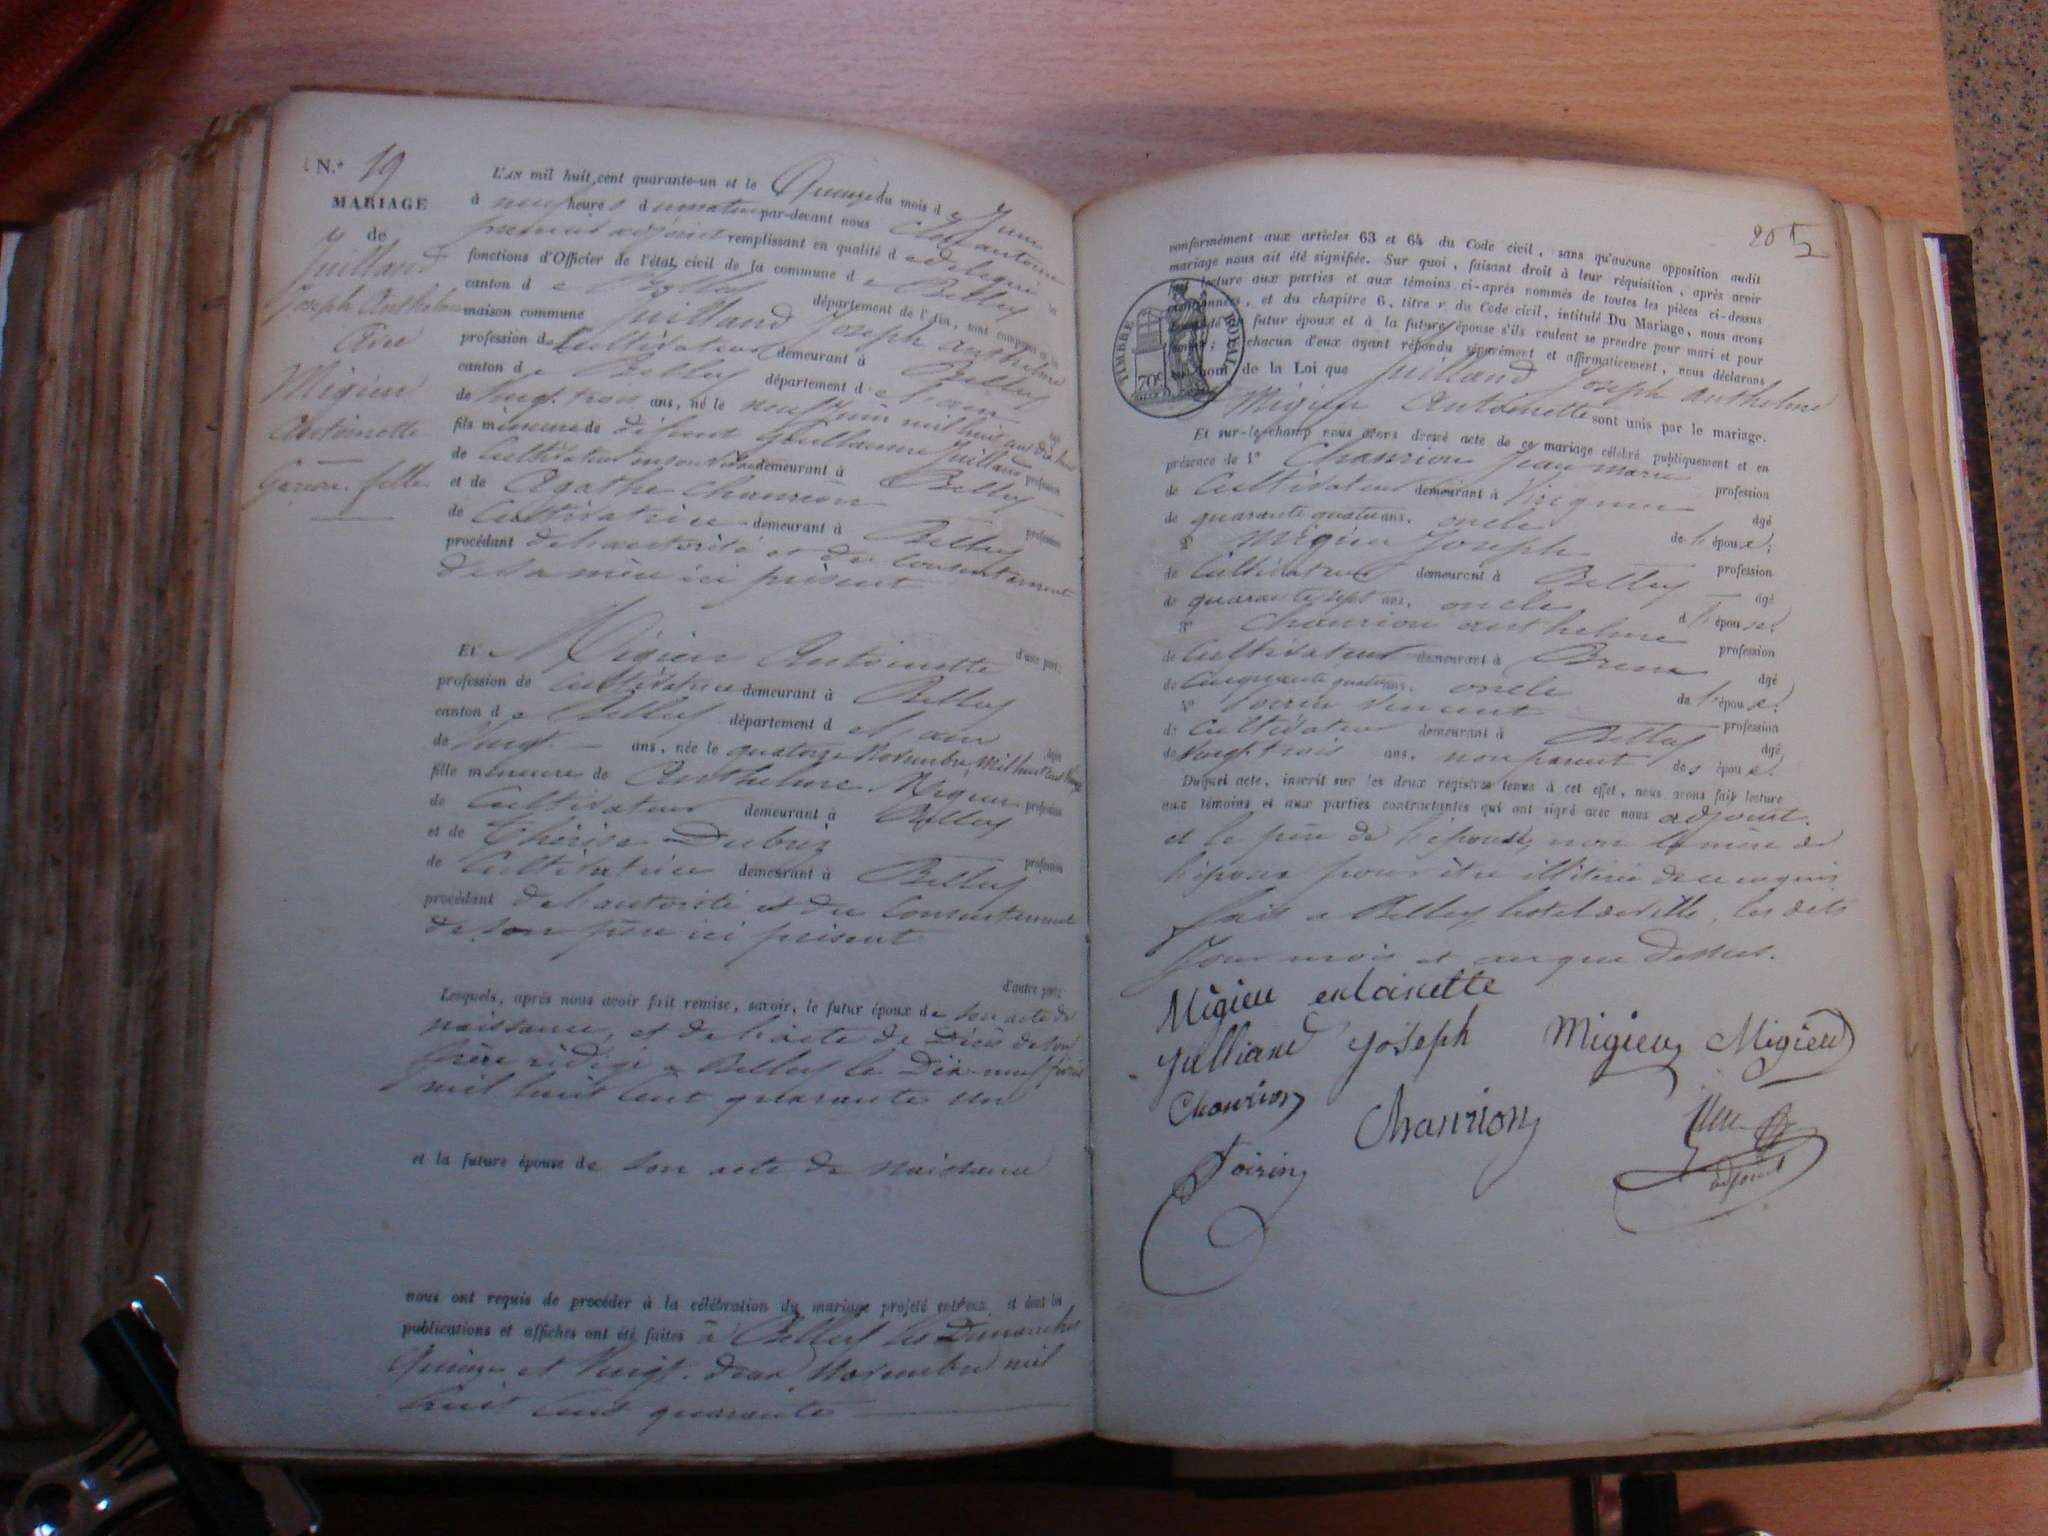 N.° 19
MARIAGE
de
Juilland
Joseph Anthelme
Avec
Migieu
Antoinette
Garçon. fille
L'AN mil huit cent quarante-un et le Quinze du mois de Juin
à neuf heures du matin par-devant nous
premier adjoint remplissant en qualité de délégué
fonctions d'Officier de l'état civil de la commune de Belley
canton de Belley département de l'Ain, sont comparus en la
maison commune Juilland Joseph Anthelme
profession de Cultivateur demeurant à Belley
canton de Belley département de l'ain
de vingt-trois ans, né le neuf juin mil huit cent dix huit
fils mineur de défunt Guillaume Juilland profession
de Cultivateur demeurant à Belley
et de Agathe Chanrion profession
de Cultivatrice demeurant à Belley
procédant de l'autorité et du Consentement
de sa mère ici présent
d'une part;
Et Migieu Antoinette
profession de Cultivatrice demeurant à Belley
canton de Belley département de l'ain
de Vingt ans, née le quatorze Novembre mil huit cent vingt
fille mineure de Anthelme Migieu profession
de Cultivateur demeurant à Belley
et de Thérèse Dubuis profession
de Cultivatrice demeurant à Belley
procédant de l'autorité et du Consentement
de son père ici présent
d'autre part;
Lesquels, après nous avoir fait remise, savoir, le futur époux de son acte de
naissance, et de l'acte de Décès de son
père rédigé à Belley le Dix-neuf
mil huit cent quarante un
et la future épouse de son acte de naissance
nous ont requis de procéder à la célébration du mariage projeté entr'eux, et dont les
publications et affiches ont été faites à Belley les Dimanches
Quinze et Vingt-deux Novembre mil
huit cent quarante
20
conformément aux articles 63 et 64 du Code civil, sans qu'aucune opposition audit
mariage nous ait été signifiée. Sur quoi, faisant droit à leur réquisition, après avoir
lecture aux parties et aux témoins ci-après nommés de toutes les pièces ci-dessus
, et du chapitre 6, titre v du Code civil, intitulé Du Mariage, nous avons
futur époux et à la future épouse s'ils veulent se prendre pour mari et pour
; chacun d'eux ayant répondu séparément et affirmativement, nous déclarons
nom de la Loi que Juilland Joseph Anthelme
Migieu Antoinette sont unis par le mariage.
TIMBRE ROYAL
70c
Et sur-le-champ nous avons dressé acte de ce mariage célébré publiquement et en
présence de 1° Chanrion Jean marie profession
de Cultivateur demeurant à Virignin âgé
de quarante quatre ans, oncle de l'époux;
2° Migieu Joseph profession
de Cultivateur demeurant à Belley âgé
de quarante sept ans, oncle de l'épouse;
3° Chanrion anthelme profession
de Cultivateur demeurant à Brens âgé
de Cinquante quatre ans, oncle de l'époux;
4° Poirin Vincent profession
de Cultivateur demeurant à Belley âgé
de vingt-trois ans, non parent des époux.
Duquel acte, inscrit sur les deux registres tenus à cet effet, nous avons fait lecture
aux témoins et aux parties contractantes qui ont signé avec nous adjoint.
et le père de l'épouse, non la mère de
l'époux pour être illitérée de ce enquis
fait à Belley hotel de ville, les dits
Jour mois et an que dessus.
Migieu entoinette
Julliand Joseph Migieu Migieu
Chanrion Chanrion
Poirin
adjoint